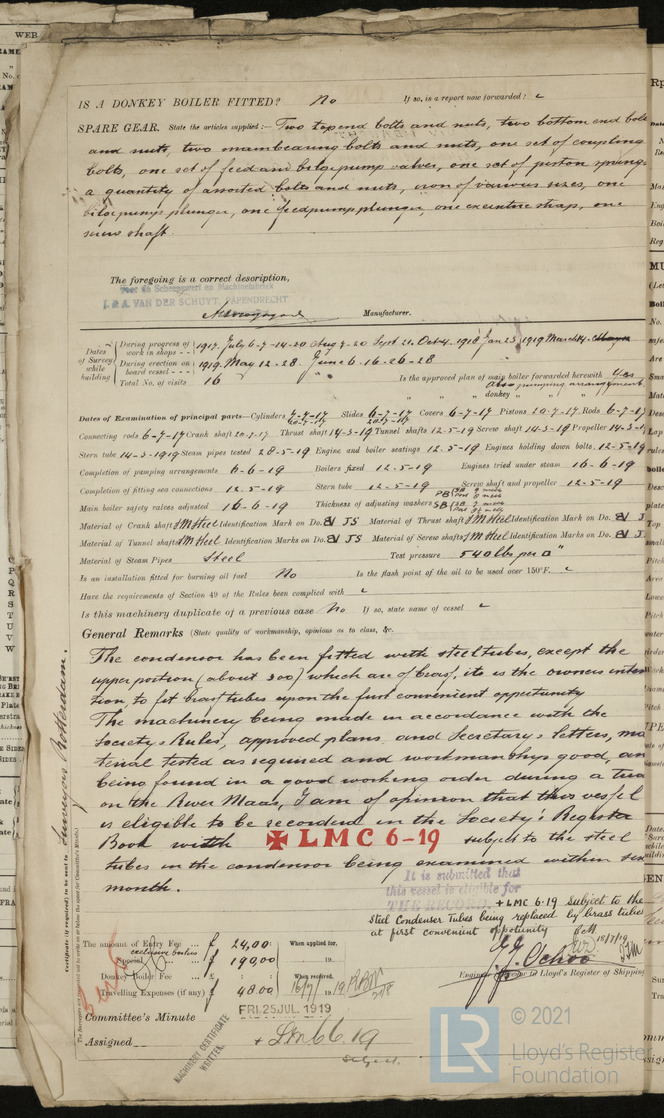 IS A DONKEY BOILER FITTED? No If so, is a report now forwarded?
SPARE GEAR. State the articles supplied:— Two top end bolts and nuts, two bottom end bolts
and nuts, two mainbearing bolts and nuts, one set of coupling
bolts, one set of feed and bilgepump valves, one set of piston springs
a quantity of assorted bolts and nuts, iron of various sizes, one
bilgepump plunger, one feedpump plunger, one excentric strap, one
screw shaft.
The foregoing is a correct description,
J. & A. VAN DER SCHUYT, PAPENDRECHT
Manufacturer.
Dates of Survey while building
During progress of work in shops 1917. July 6-7-14-20 Aug 7-20 Sept 21 Oct 4 1918 Jan 25 1919 March 14
During erection on board vessel 1919 May 12-28 June 6-16-26-28
Total No. of visits 16 Is the approved plan of main boiler forwarded herewith Yes
also pumping arrangement
" " " donkey " " "
Dates of Examination of principal parts—Cylinders 20-7-17 Slides 6-7-17 Covers 6-7-17 Pistons 20-7-17 Rods 6-7-17
Connecting rods 6-7-17 Crank shaft 20-7-17 Thrust shaft 14-3-19 Tunnel shafts 12-5-19 Screw shaft 14-3-19 Propeller 14-3-1
Stern tube 14-3-1919 Steam pipes tested 28-5-19 Engine and boiler seatings 12-5-19 Engines holding down bolts 12-5-19
Completion of pumping arrangements 6-6-19 Boilers fixed 12-5-19 Engines tried under steam 16-6-19
Completion of fitting sea connections 12-5-19 Stern tube 12-5-19 Screw shaft and propeller 12-5-19
Main boiler safety valves adjusted 16-6-19 Thickness of adjusting washers PB SB
Material of Crank shaft SM Steel Identification Mark on Do. JS Material of Thrust shaft SM Steel Identification Mark on Do. J
Material of Tunnel shafts SM Steel Identification Marks on Do. JS Material of Screw shafts SM Steel Identification Marks on Do. J
Material of Steam Pipes Steel Test pressure 540 lbs per □"
Is an installation fitted for burning oil fuel No Is the flash point of the oil to be used over 150°F.
Have the requirements of Section 49 of the Rules been complied with
Is this machinery duplicate of a previous case No If so, state name of vessel
General Remarks (State quality of workmanship, opinions as to class, &c.
The condensor has been fitted with steeltubes, except the
upper portion (about 300) which are of brass, its is the owners inten
tion, to fit brass tubes upon the first convenient opportunity
The machinery being made in accordance with the
Society's Rules, approved plans and Secretary's letters, ma
terial tested as required and workmanship good, an
being found in a good working order during a tria
on the River Maas, I am of opinion that this vessel
is eligible to be recorded in the Society's Register
Book with ✠ LMC 6-19 subject to the steel
tubes in the condensor being examined within six
month.
It is submitted that
this vessel is eligible for
THE RECORD. + LMC 6.19 Subject to the
Steel Condenser Tubes being replaced by brass tubes
at first convenient opportunity
18/7/19
The amount of Entry Fee ... £ 24,00: When applied for,
Special ... £ 190,00 19
Donkey Boiler Fee ... £ : : When received,
Travelling Expenses (if any) £ 48.00 16/7/ 1919
J. Ochoo
Engineer Surveyor to Lloyd's Register of Shipping
Committee's Minute FRI. 25 JUL. 1919
Assigned + LMC 6.19
Subject.
MACHINERY CERTIFICATE
WRITTEN.
Certificate (if required) to be sent to Surveyors Rotterdam.
© 2021
Lloyd's Register
Foundation